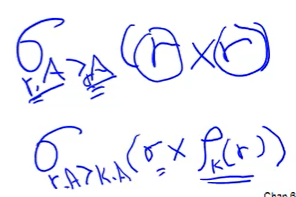 σ r.A > r.A (r × r)
σ r.A > k.A (r × ρ k (r))
Chap 6